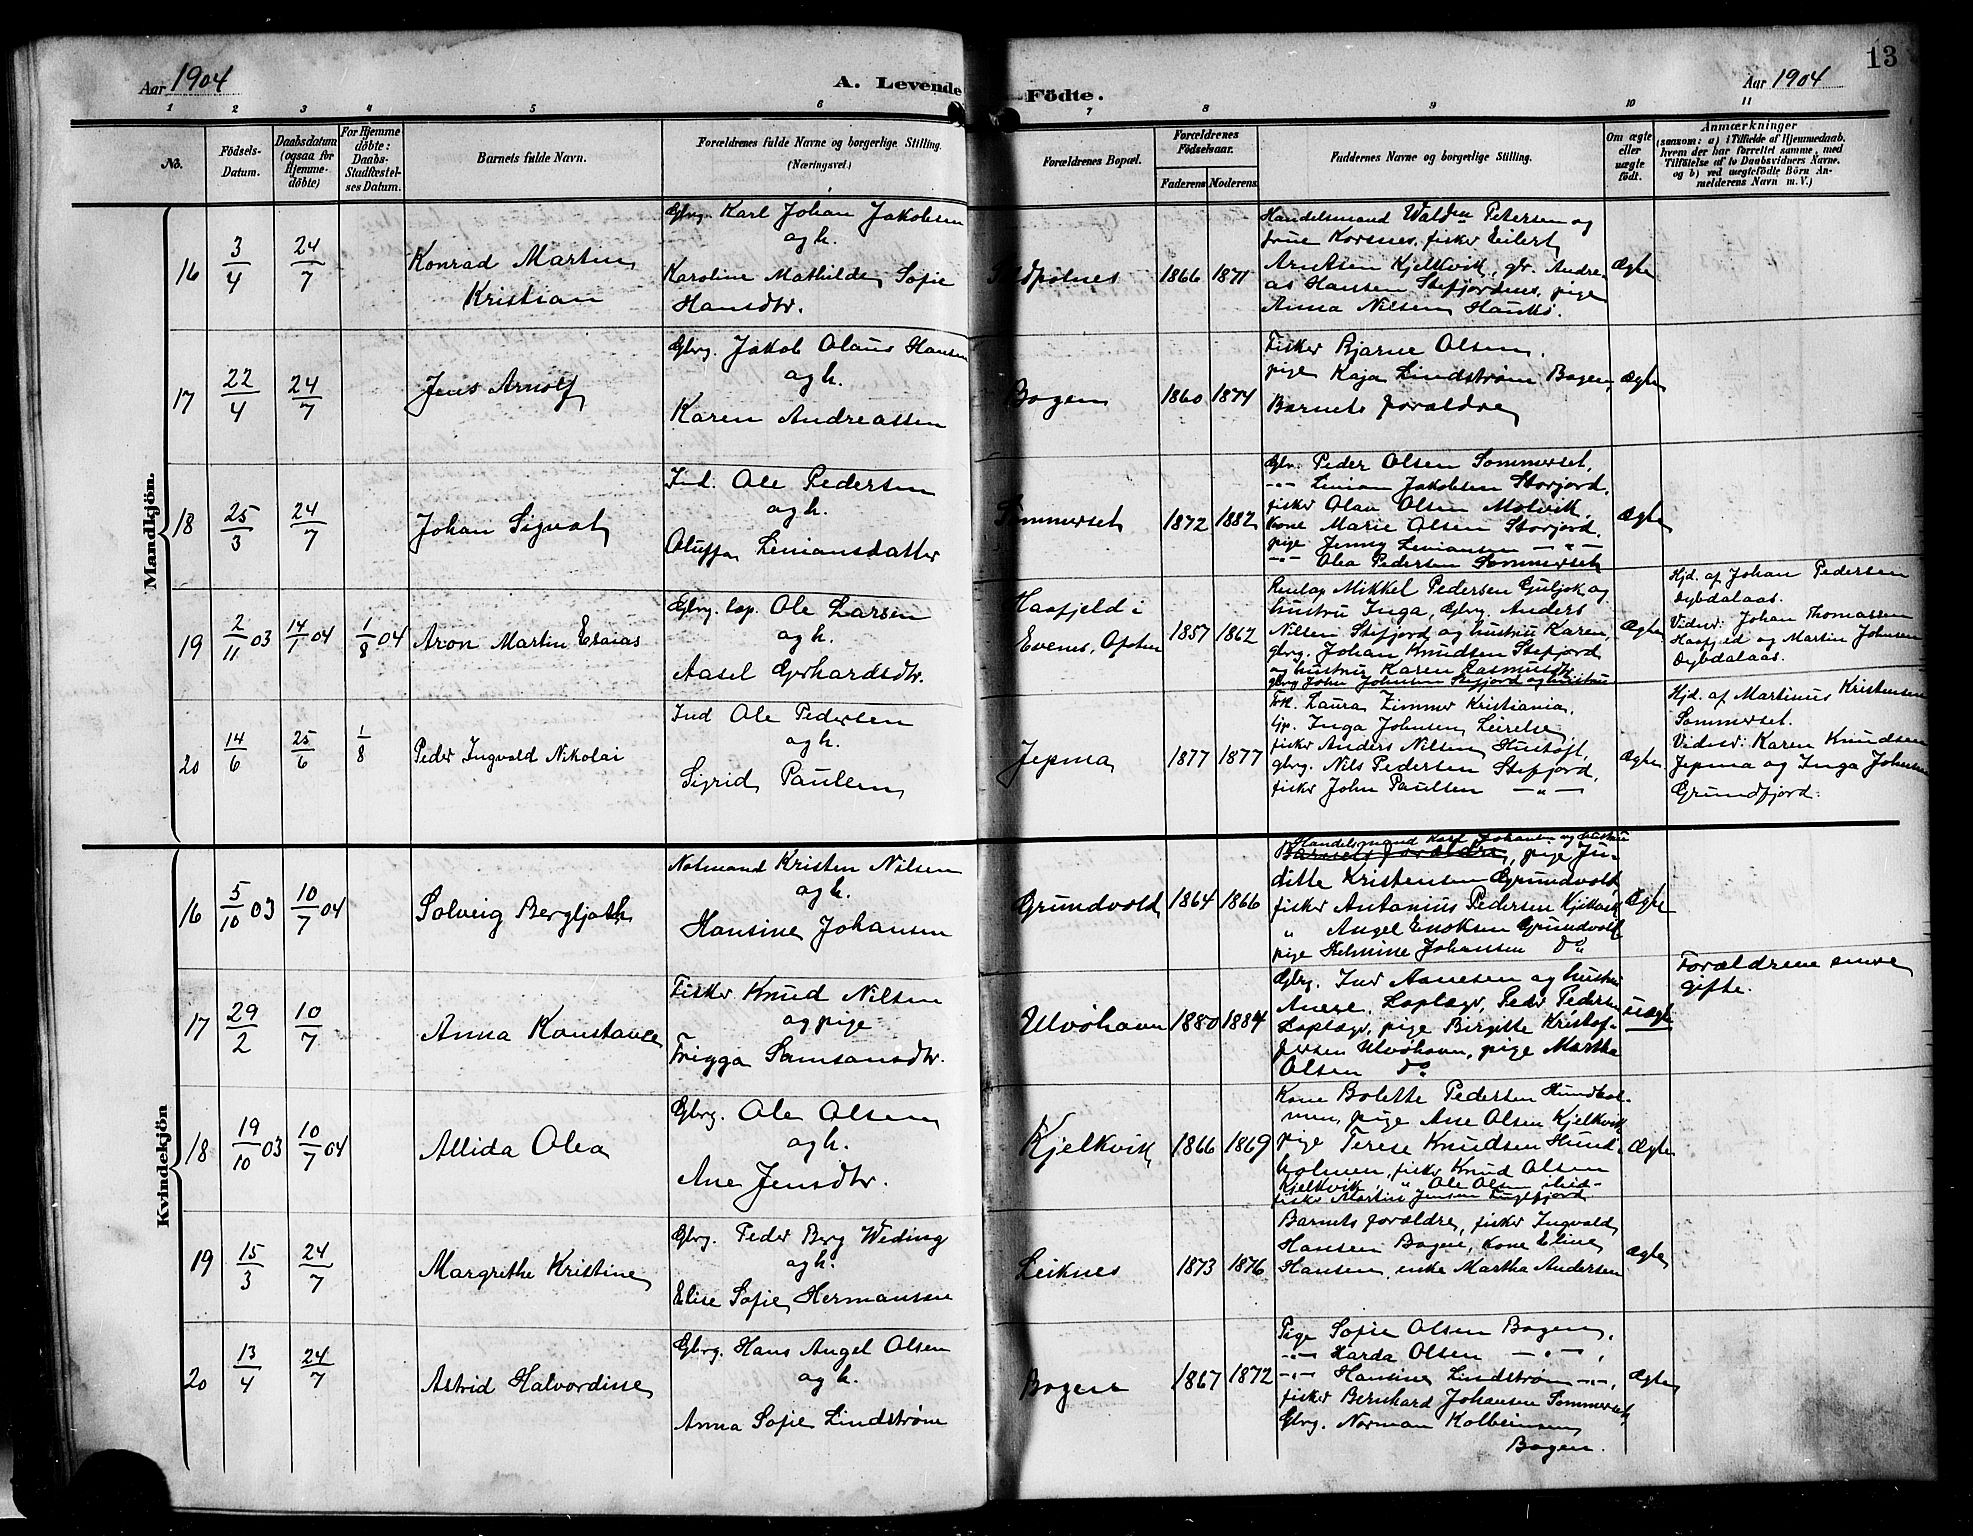 13
Aar 1904
A. Levende Födte.
Aar 1904
1 2 3 4 5 6 7 8 9 10 11
No.
Födsels-
Datum.
Daabsdatum
(ogsaa for
Hjemme-
döbte)
For Hjemme
döbte:
Daabs-
Stadfæstel-
ses Datum.
Barnets fulde Navn.
Forældrenes fulde Navne og borgerlige Stilling.
(Næringsvei.)
Forældrenes Bopæl.
Forældrenes
Födselsaar.
Faderens Moderens
Faddernes Navne og borgerlige Stilling.
Om ægte
eller
uægte
födt.
Anmærkninger
(saasom: a) i Tilfælde af Hjemmedaab,
hvem der har forrettet samme, med
Tilföielse af to Daabsvidners Navne,
og b) ved uægtefödte Börn An-
melderens Navn m. V.)
Mandkjön.
16
3/4
24/7
Konrad Martin
Kristian
Gbrg. Karl Johan Jakobsen
og h.
Karoline Mathilde Sofie
Hansdtr.
1866 1871
Handelsmand Petersen og
frue Korsnes, fisker Eilert
Arntsen Kjelkvik, gbr. Andre-
as Hansen Stefjordnes, pige
Anna Nilsen
Ægte
17
22/4
24/7
Jens Arnolf
Gbrg. Jakob Olaus Hansen
og h.
Karen Andreassen
Bogen
1860 1874
Fisker Bjarne Olsen,
pige Kaja Lindstrøm Bogen,
Barnets forældre
Ægte
18
25/3
24/7
Johan Sigvat
Ind. Ole Pedersen
og h.
Oluffa Leniansdatter
Sommerset
1872 1882
Gbr. Peder Olsen Sommerset,
-"- Lenian Jakobsen Storjord,
fisker Olav Olsen Molvik,
kone Marie Olsen Storjord,
pige Jenny Leniansen -"-
-"- Olea Pedersen Sommerset
Ægte
19
2/11 03
14/1 04
1/8 04
Aron Martin Esaias
Gbrg. lap. Ole Larsen
og h.
Aasel Gerhardsdtr.
Haafjeld i
Evenes, Ofoten
1857 1862
Renlap Mikkel Pedersen og
hustru Inga, Gbrg. Anders
Nilsen Stefjord og hustru Karen,
gbrg. Johan Knudsen Stefjord
og hustru Karen Rasmusdtr.
gbrg John Johnsen Stefjord og hustru
Ægte
Hjd. af Johan Pedersen
Dybdalaas.
Vidner: Johan Thomassen
Haafjeld og Martin Johnsen
Dybdalaas.
20
14/6
25/6
1/8
Peder Ingvald Nikolai
Ind Ole Pedersen
og h.
Sigrid Paulsen
Jepma
1877 1877
Frk. Laura Zimmer Kristiania,
Inga Johnsen Leirelse,
fisker Anders Nilsen Hustoft,
gbrg. Nils Pedersen Stefjord,
fisker John Paulsen -"-
Ægte
Hjd. af Martinus Kristensen
Sommerset.
Vidner: Karen Knudsen
Jepma og Inga Johnsen
Grundfjord.
Kvindekjön
16
5/10 03
10/7 04
Solveig Bergljoth
Notmand Kristen Nilsen
og h.
Hansine Johansen
Grundvold
1864 1866
Handelsmand Karl Johansen og hustru
Barnets forældre, pige Ju-
ditte Kristensen Grundvold,
fisker Antonius Pedersen Kjelkvik
" Angel Enoksen Grundvold
pige Helmine Johansen do
Ægte
17
29/2
10/7
Anna Konstance
Fisker Knud Nilsen
og pige
Frigga Samsonsdtr.
Ulvohavn
1880 1884
Gbrg. Iver Aanesen og hustru
Anne, Loplagr, Peder Pedersen
Loplagr, pige Birgitte Kristof-
fersen Ulvohavn, pige Martha
Olsen do
uægte
Forældrene senere
gifte.
18
19/10 03
10/7 04
Allida Olea
Gbrg. Ole Olsen
og h.
Ane Jensdtr.
Kjelkvik
1866 1869
Kone Bolette Pedersen Hundhol-
men, pige Ane Olsen Kjelkvik
pige Terese Knudsen Hund-
holmen, fisker Knud Olsen
Kjelkvik, " Ole Olsen ibid-
fisker Martin Jensen
Ægte
19
15/3
24/7
Margrethe Kristine
Gbrg. Peder Berg Weding
og h.
Elise Sofie Hermansen
Leiknes
1873 1876
Barnets forældre, fisker Ingvald
Hansen Bogen, kone Eline
Hansen, enke Martha Andersen
Ægte
20
13/4
24/7
Astrid Halvordine
Gbrg. Hans Angel Olsen
og h.
Anna Sofie Lindstrøm
Bogen
1867 1872
Pige Sofie Olsen Bogen,
-"- Harda Olsen -"-,
-"- Hansine Lindstrøm -"-,
fisker Bernhard Johansen Sommerset,
Gbrg. Norman Kolbeinsen
Bogen.
Ægte